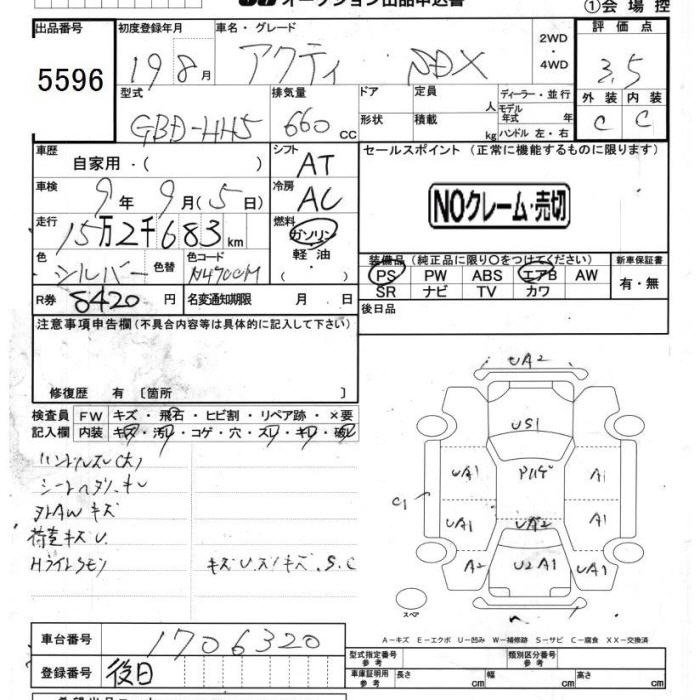 オークション出品申込書
①会場控
出品番号 初度登録年月 車名・グレード 2WD・4WD 評価点
5596 19 8月 アクティ SDX 3.5
型式 排気量 ドア 定員 ディーラー・並行 外装 内装
GBD-HH5 660cc 形状 積載 人 kg モデル年式 年 ハンドル 左・右 C C
車歴 自家用・( ) シフト AT セールスポイント (正常に機能するものに限ります)
車検 9年9月(5日) 冷房 AC
NOクレーム・売切
走行 15万2千683km 燃料 ガソリン 軽油・
色 シルバー 色替 色コード NH700M 装備品 (純正品に限り〇をつけてください) 新車保証書
PS PW ABS エアB AW 有・無
SR ナビ TV カワ
R券 8420円 名変通知期限 月 日 後日品
注意事項申告欄(不具合内容等は具体的に記入して下さい)
修復歴 有 〔箇所 〕
検査員 FW キズ・飛石・ヒビ割・リペア跡・×要
記入欄 内装 キズ・汚レ・コゲ・穴・スレ・キレ・破レ
ハンドルスレ(大)
シートヘタリ・キレ
外AWキズ
荷室キズU.
Hライトクモリ キズU.スリキズ.S.C
UA2
US1
UA1 Pハゲ A1
C1
UA1 UA2 A1
A2 U2A1 UA1
スペア
A－キズ E－エクボ U－凹み W－補修跡 S－サビ C－腐食 XX－交換済
車台番号 1706320 型式指定番号 参考 類別区分番号 参考
登録番号 後日 車庫証明用 参考 長さ cm 幅 cm 高さ cm